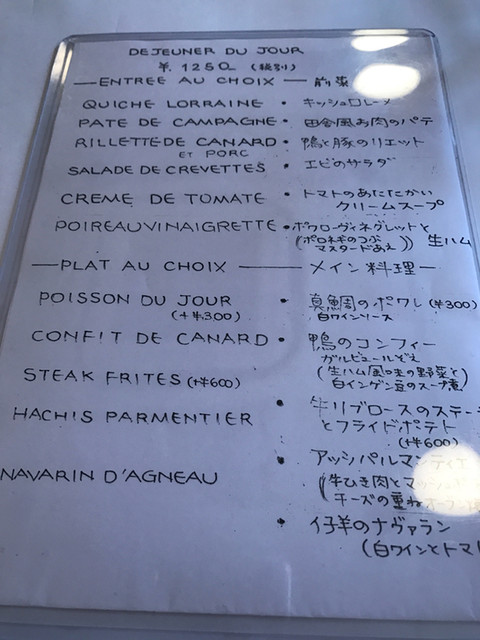 DEJEUNER DU JOUR
¥.1250 (税別)
ENTREE AU CHOIX 前菜
QUICHE LORRAINE • キッシュロレーヌ
PATE DE CAMPAGNE • 田舎風お肉のパテ
RILLETTE DE CANARD • 鴨と豚のリエット
ET PORC
SALADE DE CREVETTES • エビのサラダ
CREME DE TOMATE • トマトのあたたかい
クリームスープ
POIREAU VINAIGRETTE • ポワローヴィネグレットと
(ポロネギのつぶ 生ハム
マスタードあえ)
PLAT AU CHOIX メイン料理
POISSON DU JOUR • 真鯛のポワレ (¥300)
(+¥300) 白ワインソース
CONFIT DE CANARD • 鴨のコンフィー
ガルビュールぞえ
(生ハム風味の野菜と
白インゲン豆のスープ煮)
STEAK FRITES (+¥600) • 牛リブロースのステー
とフライドポテト
(+¥600)
HACHIS PARMENTIER • アッシパルマンティエ
(牛ひき肉とマッシュ
チーズの重ね
NAVARIN D'AGNEAU • 仔羊のナヴァラン
(白ワインとトマト